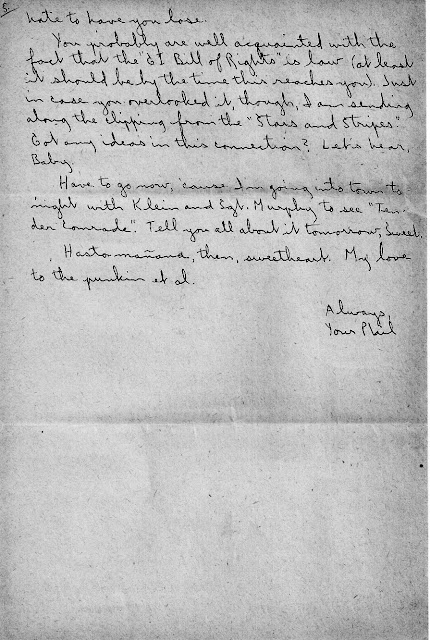 5.
hate to have you lose.
You probably are well acquainted with the
fact that the "GI Bill of Rights" is law (at least
it should be by the time this reaches you). Just
in case you overlooked it, though, I am sending
along the clipping from the "Stars and Stripes".
Got any ideas in this connection? Let's hear,
Baby.
Have to go now, 'cause I'm going into town to-
night with Klein and Sgt. Murphy to see "Ten-
der Comrade". Tell you all about it tomorrow, Sweet.
Hasta mañana, then, sweetheart. My love
to the punkin et al.
Always,
Your Phil